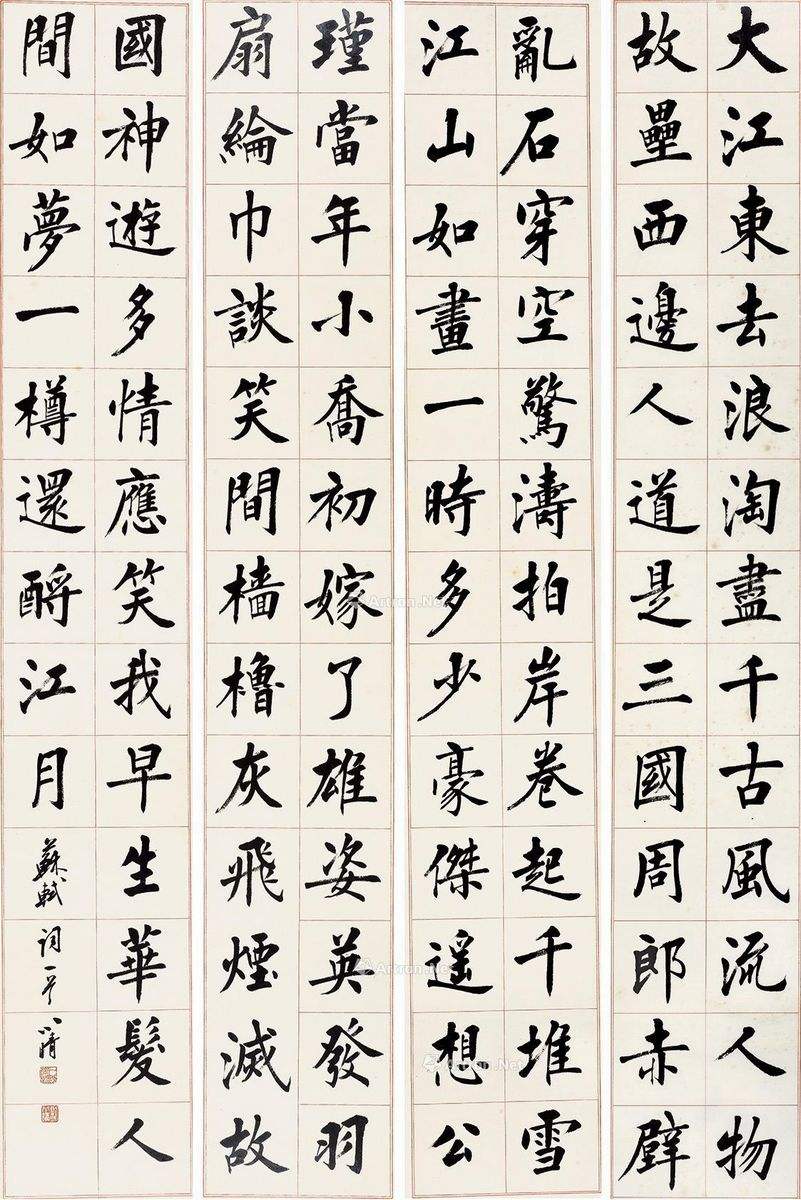 大江東去浪淘盡千古風流人物
故壘西邊人道是三國周郎赤壁
亂石穿空驚濤拍岸卷起千堆雪
江山如畫一時多少豪傑遥想公
瑾當年小喬初嫁了雄姿英發羽
扇綸巾談笑間檣櫓灰飛煙滅故
國神遊多情應笑我早生華髮人
間如夢一樽還酹江月蘇軾詞一
Artron.Net
Artron.Net
Artron.Net